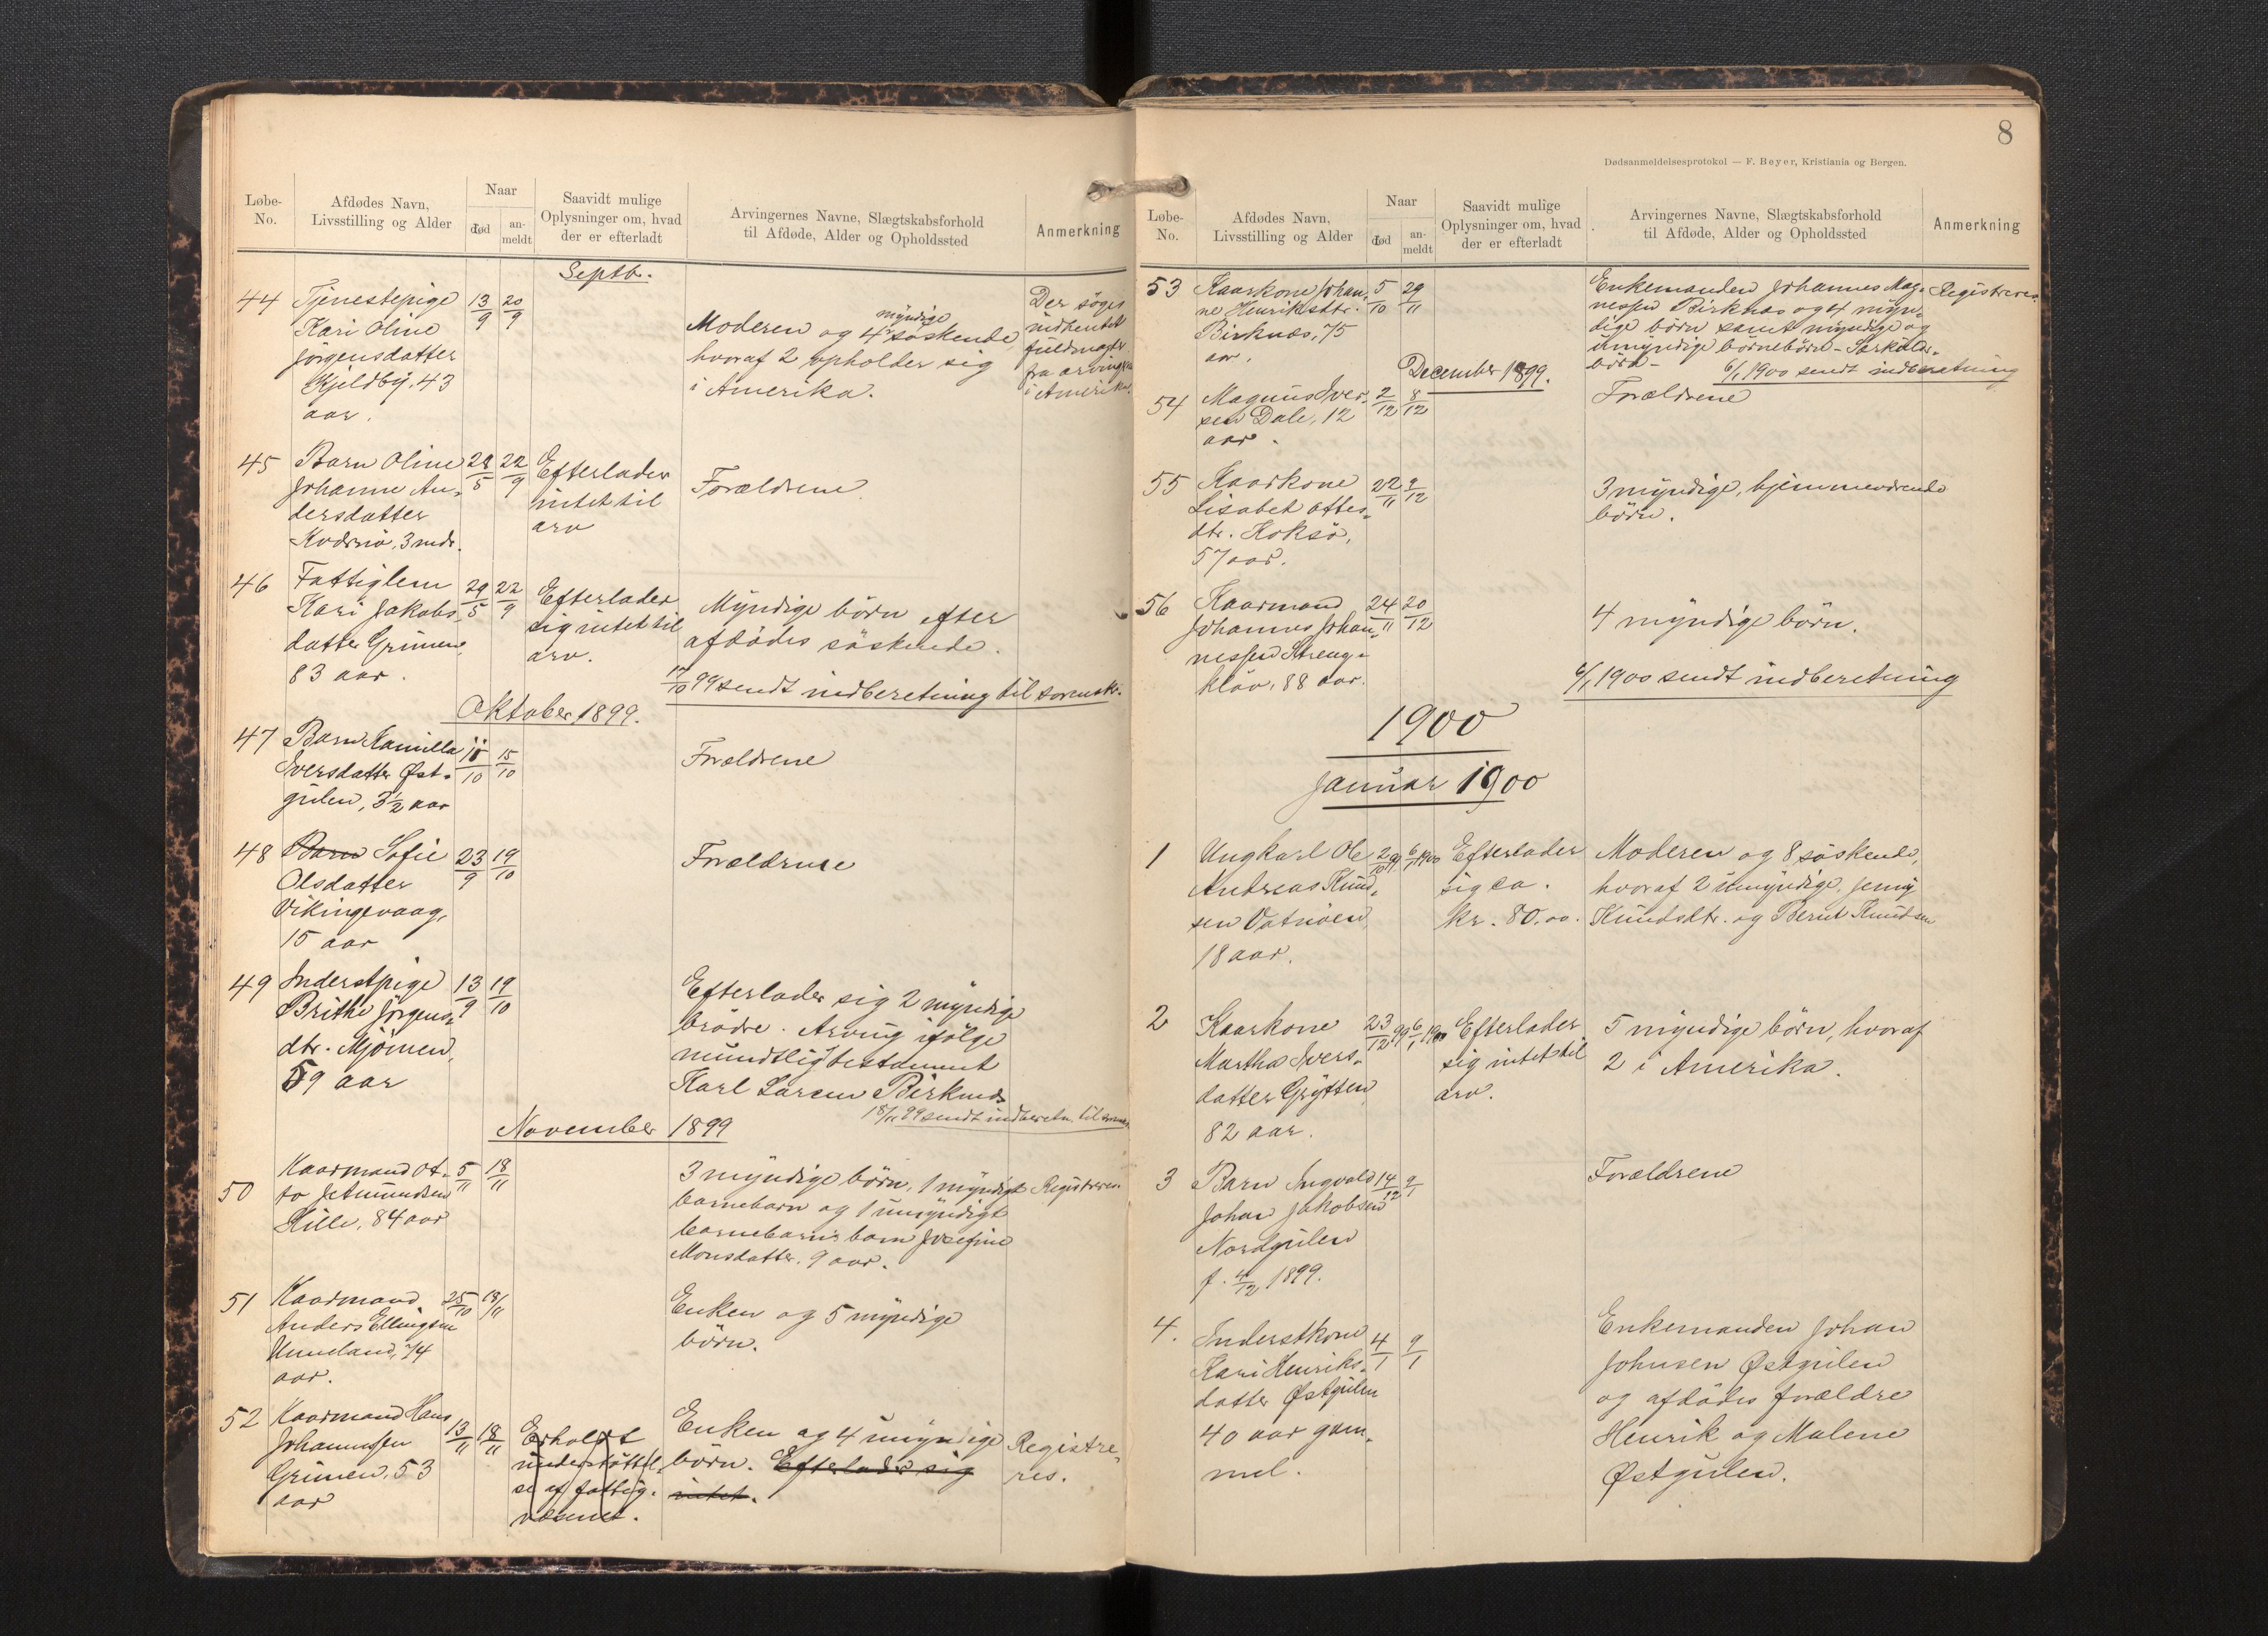 Løbe-No.
Afdødes Navn, Livsstilling og Alder
Naar
død
an-meldt
Saavidt mulige Oplysninger om, hvad der er efterladt
Arvingernes Navne, Slægtskabsforhold til Afdøde, Alder og Opholdssted
Anmerkning
Septb.
44
Tjenestepige
Kari Oline
Jörgensdatter
Kjeldby, 43
aar.
13/9
20/9
myndige
Moderen og 4 söskende,
hvoraf 2 opholder sig
i Amerika.
Der söges
indhentet
fuldmagt
fra arvingene
i Amerika.
45
Barn Oline
Johanne An-
dersdatter
Kversiö, 3 mdr.
28/5
22/9
Efterlader
intet til
arv
Forældrene
46
Fattiglem
Kari Jakobs-
datter Grimen,
83 aar.
29/5
22/9
Efterlader
sig intet til
arv.
Myndige börn efter
afdødes söskende.
17/10 99 sendt indberetning til sorensk.
Oktober 1899.
47
Barn Kamilla
Iversdatter Øst-
gulen, 3½ aar
11/10
15/10
Forældrene
48
Barn Sofie
Olsdatter
Vikingevaag,
15 aar
23/9
19/10
Forældrene
49
Inderstpige
Brithe Jörgens-
dtr. Mjömen,
59 aar
13/9
19/10
Efterlader sig 2 myndige
brödre. Arving ifölge
mundtligt testament
Karl Larsen Birknes
18/11 99 sendt indberetn. til sorensk.
November 1899
50
Kaarmand Ot-
to J. Amundsen
Hille, 84 aar
5/11
18/11
3 myndige börn, 1 myndigt
barnebarn og 1 umyndigt
barnebarns barn Josefine
Monsdatter. 9 aar.
Registreres
51
Kaarmand
Anders Ellingsen
Unneland, 74
aar.
25/10
18/11
Enken og 5 myndige
börn.
52
Kaarmand Hans
Johannessen
Grimen, 53
aar
13/11
18/11
Erholdt
understöttel-
se af fattig-
væsenet.
Enken og 4 umyndige
börn. Efterlader sig
intet.
Registre-
res.
8
Dødsanmeldelsesprotokol — F. Beyer, Kristiania og Bergen.
Løbe-No.
Afdødes Navn, Livsstilling og Alder
Naar
død
an-meldt
Saavidt mulige Oplysninger om, hvad der er efterladt
Arvingernes Navne, Slægtskabsforhold til Afdøde, Alder og Opholdssted
Anmerkning
53
Kaarkone Johan-
ne Henriksdtr.
Birknæs, 75
aar.
5/10
29/11
Enkemanden Johannes Mag-
nessen Birknæs og 4 myn-
dige börn samt myndige og
umyndige börnebörn - Særkuls-
börn -
Registreres
6/1 1900 sendt indberetning
December 1899.
54
Magnus Iver-
sen Dale, 12
aar.
2/12
8/12
Forældrene
55
Kaarkone
Lisabet Ottes-
dtr. Koksö,
57 aar.
22/11
9/12
3 myndige, hjemmeværende
börn.
56
Kaarmand
Johannes Johan-
nessen Streng-
kläv, 88 aar.
24/11
20/12
4 myndige börn.
6/1 1900 sendt indberetning
1900
Januar 1900
1
Ungkarl Ole
Andreas Knud-
sen Vatnöen
18 aar.
2/10 99
6/1 1900
Efterlader
sig ca.
kr. 80.00.
Moderen og 8 söskende,
hvoraf 2 umyndige, Jenny
Knudsdtr. og Bernt Knudsen
2
Kaarkone
Martha Ivers-
datter Grytten
82 aar.
23/12 99
6/1 1900
Efterlader
sig intet til
arv.
5 myndige börn, hvoraf
2 i Amerika.
3
Barn Ingvald
Johan Jakobsen
Nordgulen
f. 4/12 1899.
14/12
9/1
Forældrene
4.
Inderstkone
Kari Henriks-
datter Østgulen
40 aar gam-
mel.
4/1
9/1
Enkemanden Johan
Johnsen Østgulen
og afdødes forældre
Henrik og Malene
Østgulen.